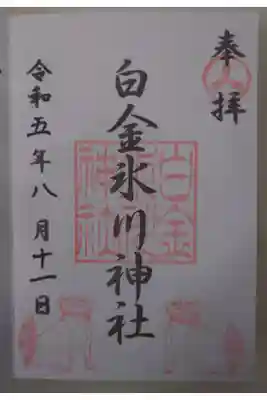 奉拝
白金氷川神社
令和五年八月十一日
白金氷川神社